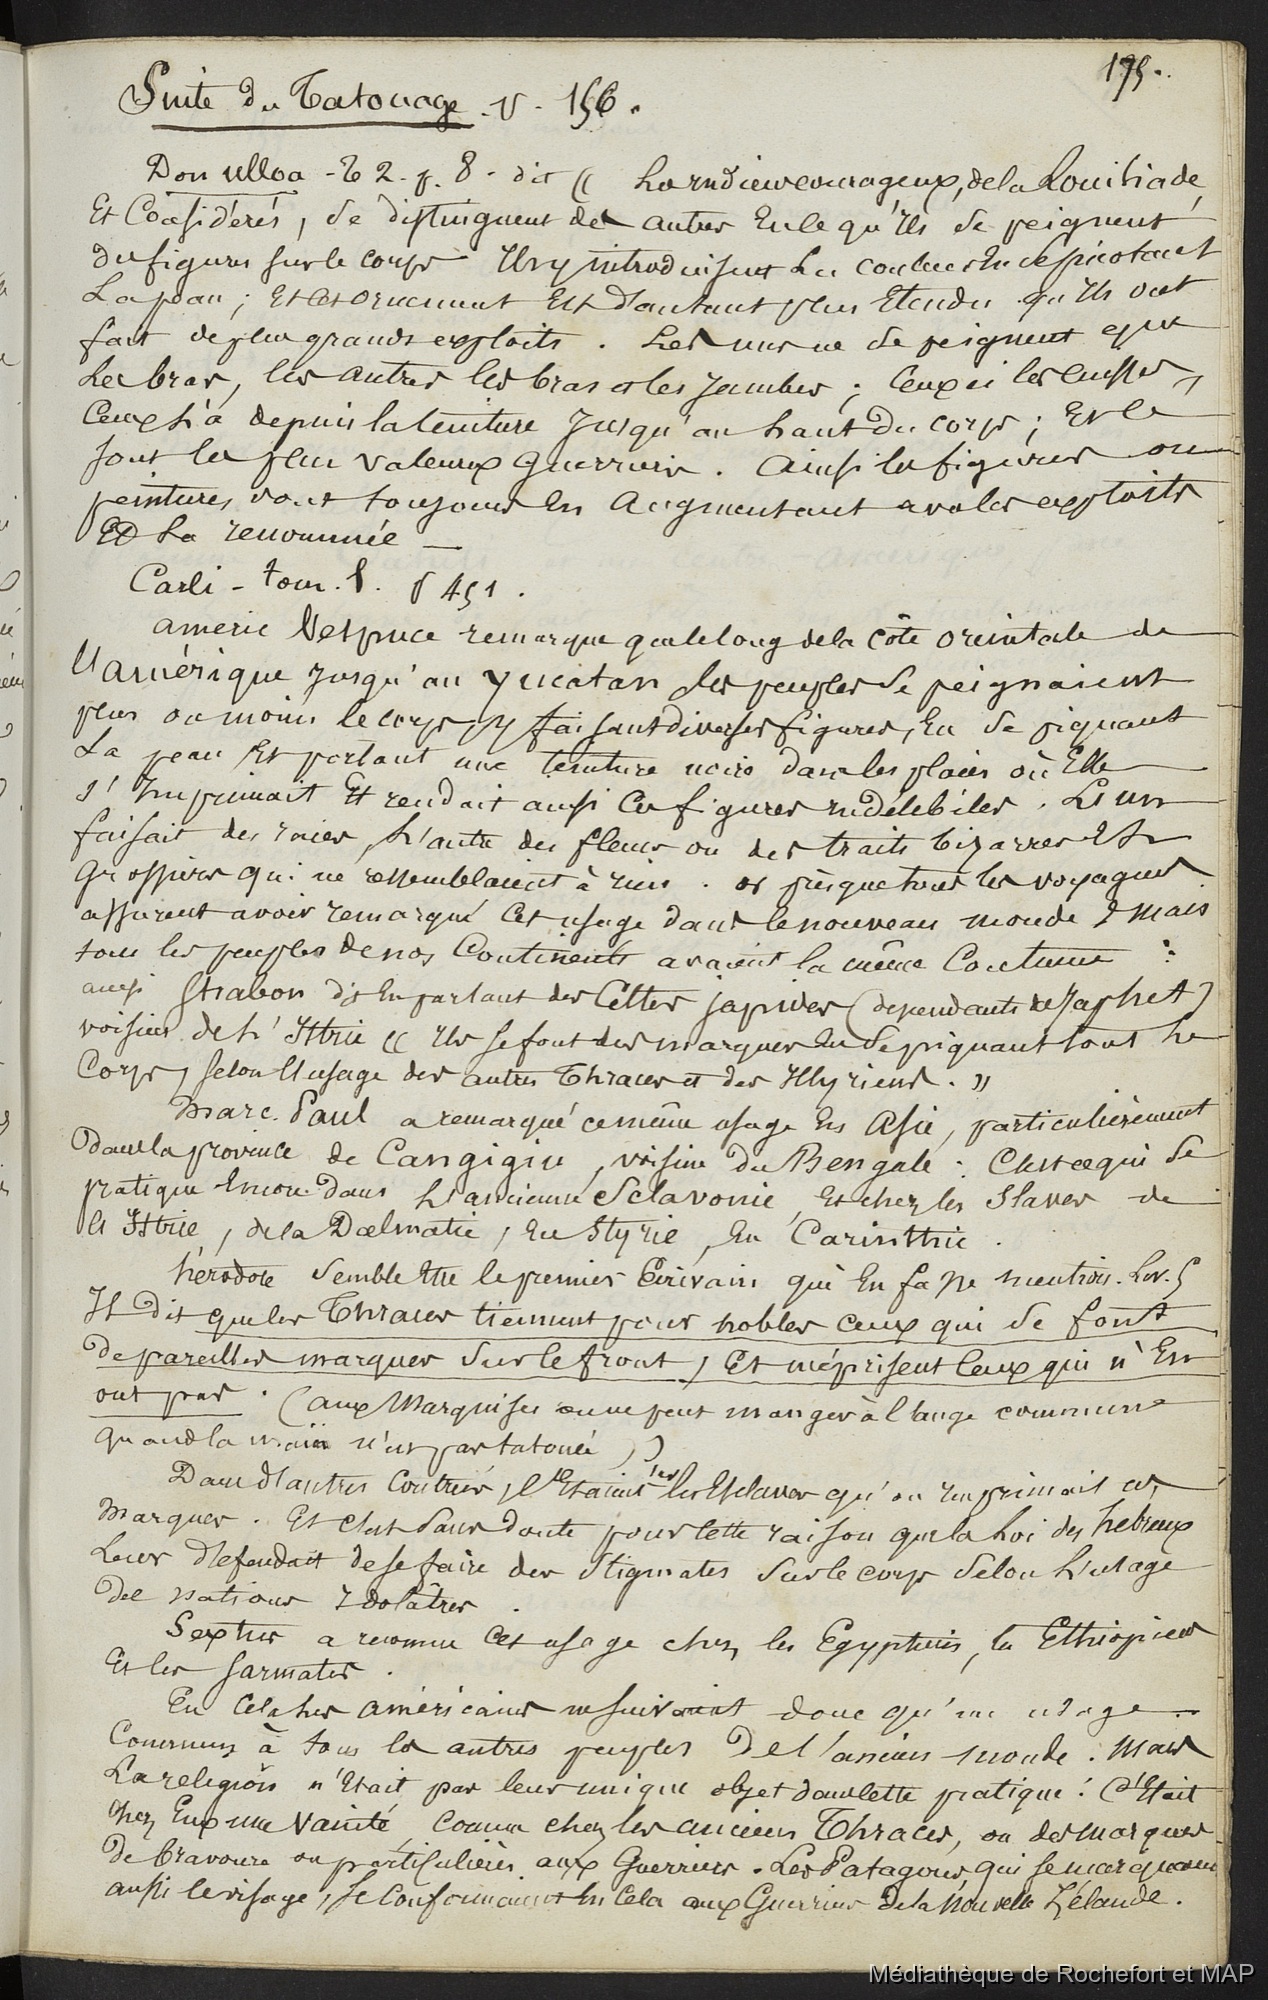 195.
Suite du Tatouage. v. 156.
Don ulloa - t 2. p. 8. dit (( Les indiens courageux, de la Louisiade,
Et Considérés, se distinguent des autres En ce qu'ils se peignent
des figures sur le corps Ils y introduisent les couleurs En se picotant
La peau ; Et cet ornement Est d'autant plus Etendu qu'ils ont
fait de plus grands exploits. Les uns ne se peignent que
Les bras, les autres les bras et les jambes ; Ceux ci les cuisses,
Ceux là depuis la ceinture jusqu'au haut du corps ; Et ce
sont les plus valeureux guerriers. Ainsi les figures ou
peintures vont toujours En Augmentant avec les exploits
Et La renommée —
Carli - tom. 1. p 451.
americ Vespuce remarque que le long de la côte orientale de
L'amérique jusqu'au yucatan les peuples se peignaient
plus ou moins le corps, y faisant diverses figures, En se piquant
La peau Et portant une teinture noire dans les plaies où Elle
s'Imprimait Et rendait ainsi Ces figures indélébiles. L'un
faisait des raies, L'autre des fleurs ou des traits bizarres Et
Grossiers qui ne ressemblaient à rien. or presque tous les voyageurs
assurent avoir remarqué Cet usage dans le nouveau monde ; Mais
tous les peuples de nos Continents avaient la même Coutume :
ainsi Strabon dit En parlant des Celtes japides (dependants de Japhet)
voisins de L'Istrie (( Ils se font des marques En se piquant tout Le
Corps, selon L'usage des autres Thraces et des Illyriens. ))
Marc. Paul a remarqué ce même usage En Asie, particulièrement
Dans la province de Cangigin, voisine du Bengale. C'est ce qui se
pratique Encore dans L'ancienne Sclavonie, Et chez les Slaves de
L'Istrie, de la Dalmatie, En Styrie, En Carinthie.
hérodote semble Etre le premier Ecrivain qui En fasse mention. Liv. 5
Il dit que les Thraces tiennent pour nobles ceux qui se font
De pareilles marques sur le front, Et méprisent Ceux qui n'En
ont pas. (aux Marquises on ne peut manger à l'auge commune
quand la main n'est pas tatouée))
Dans d'autres Contrées, C'Etaient les Esclaves qu'on imprimait ces
Marques. Et C'est sans doute pour Cette raison que la Loi des hébreux
Leur défendait de se faire des Stigmates sur le corps selon L'usage
Des nations Idolâtres.
Sextus a reconnu Cet usage chez les Egyptiens, les Ethiopiens
Et les sarmates.
En Cela Les américains ne suivaient donc qu'un usage
Commun à tous les autres peuples De l'ancien monde. Mais
La religion n'Etait pas leur unique objet dans Cette pratique : C'Etait
Chez Eux une Vanité, Comme chez les anciens Thraces, ou des marques
De bravoure particulières aux Guerriers. Les Patagons, qui se marquaient
aussi le visage, se Conformaient En Cela aux Guerriers de la Nouvelle Zélande.
Médiathèque de Rochefort et MAP